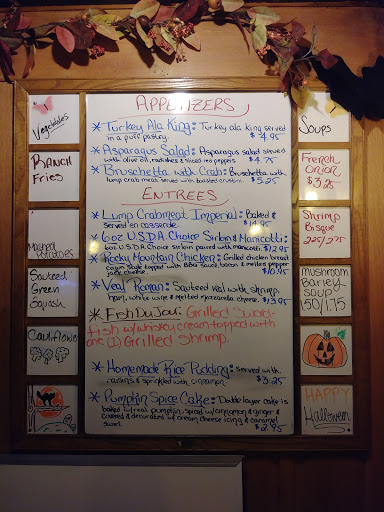 Vegetables
Ranch
Fries
Mashed
Potatoes
Sauteed
Green
Squash
Cauliflower
APPETIZERS
* Turkey Ala King: Turkey ala king served
in a puff pastry. $4.95
* Asparagus Salad: Asparagus salad served
with olive oil, radishes & sliced red peppers $4.75
* Bruschetta with Crab: Bruschetta with
lump crab meat served with toasted crostini. $5.25
ENTREES
* Lump Crabmeat Imperial: Baked &
served en casserole. $14.95
* 6oz U.S.D.A. Choice Sirloin & Manicotti:
6oz U.S.D.A Choice Sirloin paired with manicotti. $12.95
* Rocky Mountain Chicken: Grilled chicken breast
topped with BBQ sauce, bacon & melted pepper
jack cheese. $10.95
* Veal Roman: Sauteed veal with shrimp,
ham, white wine & melted mozzarella cheese. $13.95
* Fish Du Jour: Grilled Sword-
fish w/whiskey cream topped with
one (1) Grilled Shrimp.
* Homemade Rice Pudding: Served with
raisins & sprinkled with cinnamon. $3.25
* Pumpkin Spice Cake: Double layer cake is
baked w/real pumpkin, spiced w/cinnamon & ginger &
covered & decorated w/cream cheese icing & caramel
swirl. $2.95
Soups
French
Onion
$3.25
Shrimp
Bisque
2.25/2.75
Mushroom
Barley
Soup
1.50/1.75
HAPPY
Halloween